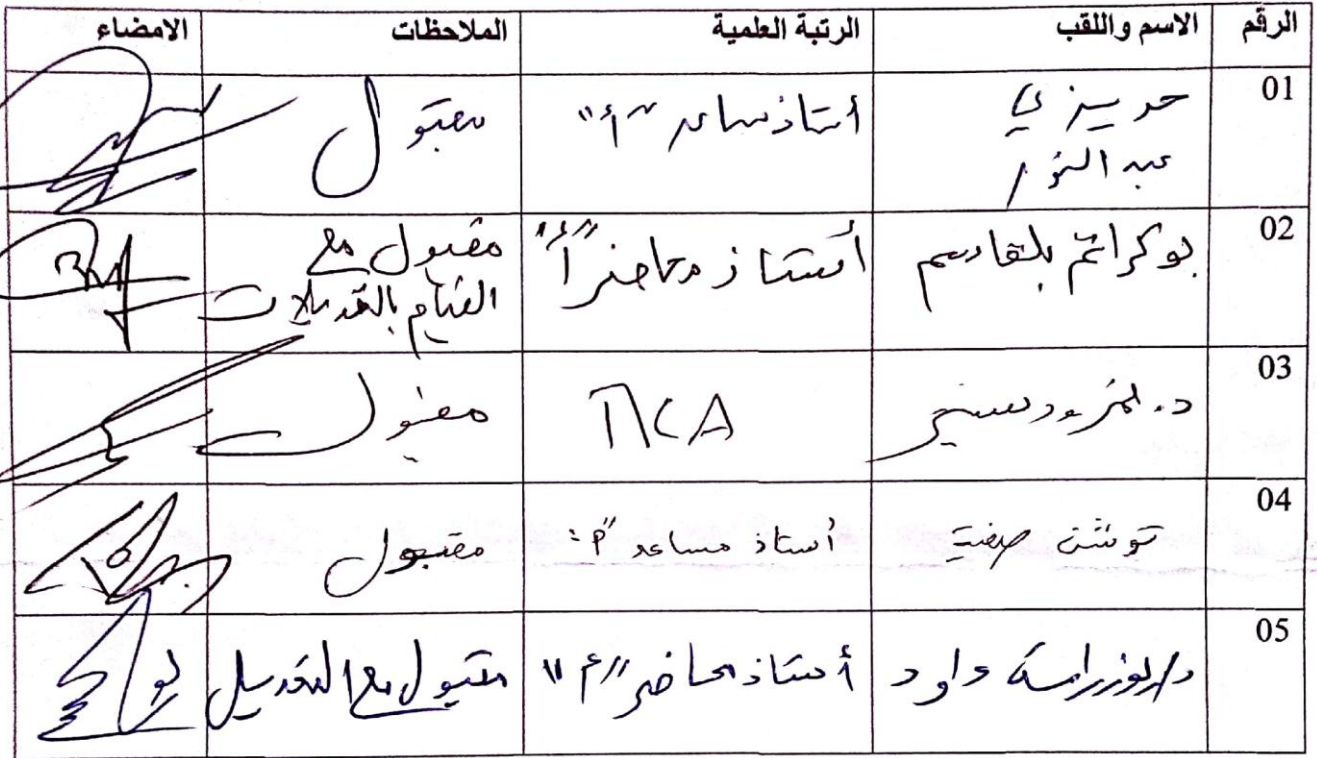 الرقم الاسم واللقب الرتبة العلمية الملاحظات الامضاء
01 حريزي أستاذ مساعد "أ" مقبول
عبد النور
02 بوكراتم بلقاسم أستاذ محاضر "أ" مقبول مع
القيام بالتعديلات
03 د. MCA مقبول
04 أستاذ مساعد "أ" مقبول
05 داود أستاذ محاضر "أ" مقبول مع التعديل